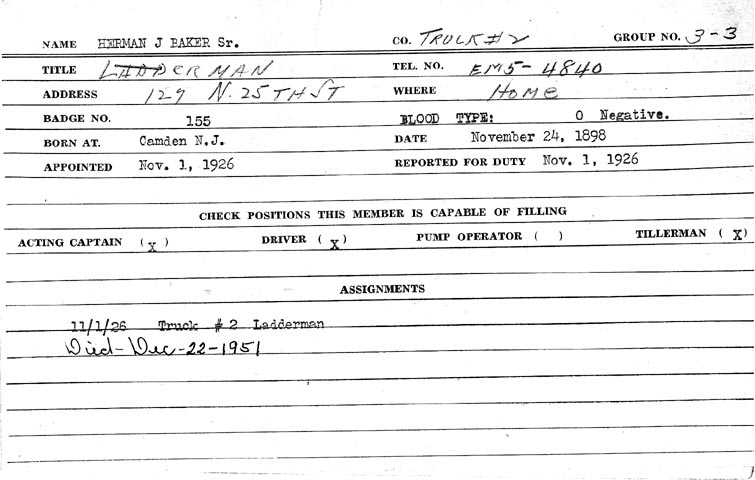 NAME HERMAN J BAKER Sr. CO. TRUCK #2 GROUP NO. 3-3
TITLE LADDERMAN TEL. NO. EM5-4840
ADDRESS 129 N. 25TH ST WHERE HOME
BADGE NO. 155 BLOOD TYPE: O Negative.
BORN AT. Camden N.J. DATE November 24, 1898
APPOINTED Nov. 1, 1926 REPORTED FOR DUTY Nov. 1, 1926
CHECK POSITIONS THIS MEMBER IS CAPABLE OF FILLING
ACTING CAPTAIN (X) DRIVER (X) PUMP OPERATOR ( ) TILLERMAN (X)
ASSIGNMENTS
11/1/26 Truck # 2 Ladderman
Died-Dec-22-1951